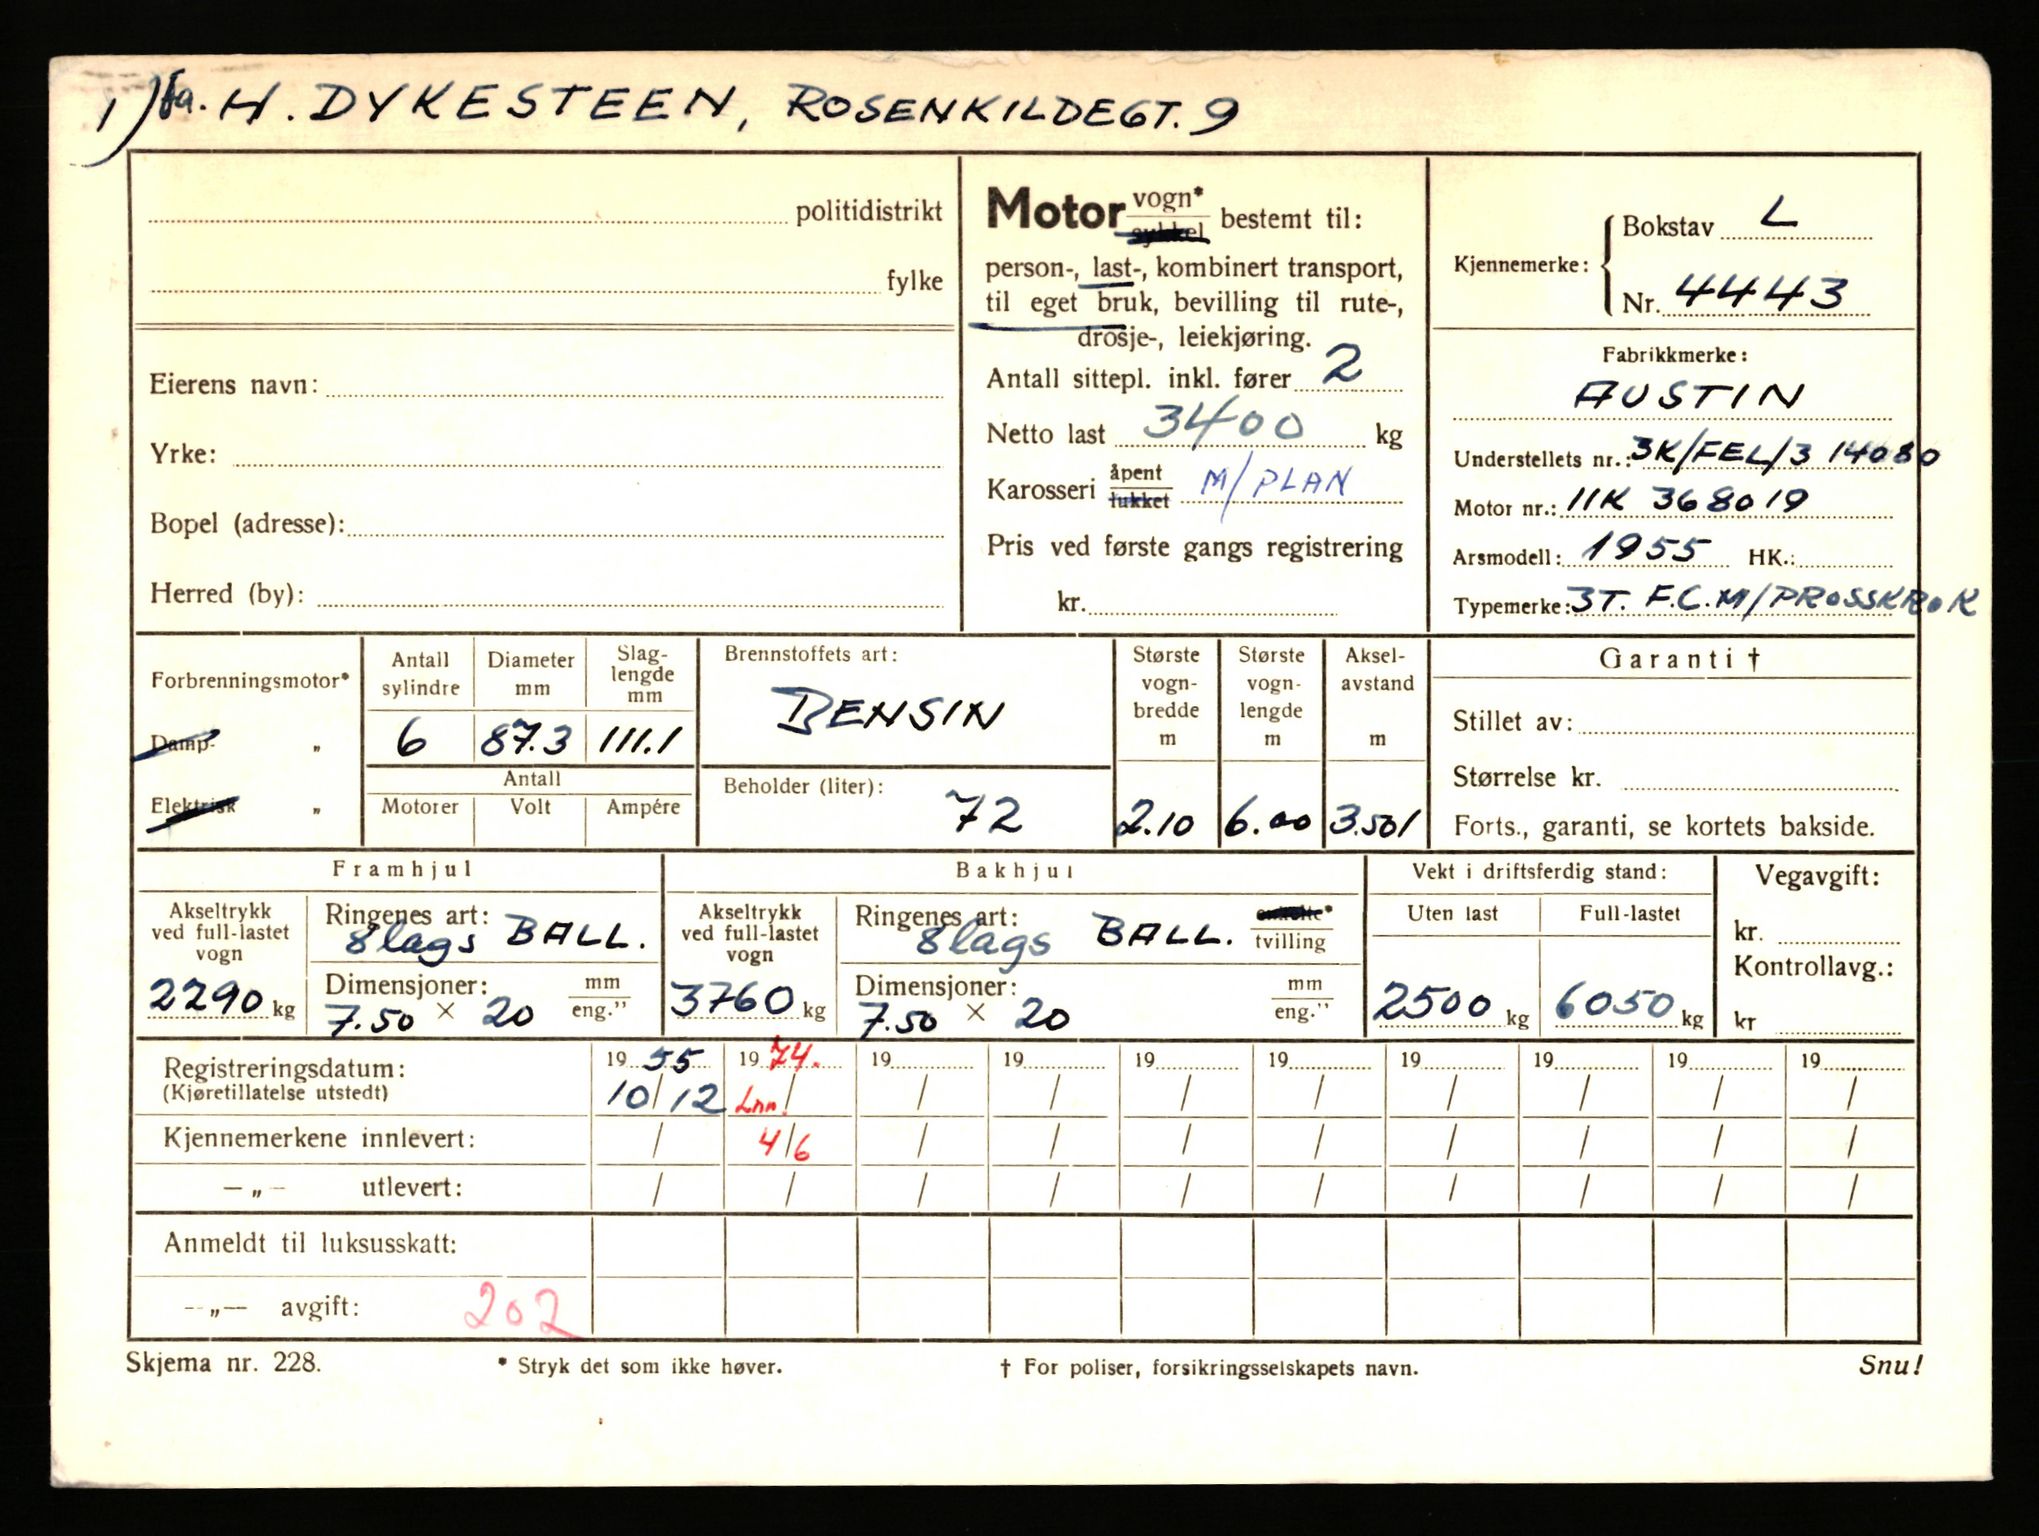 1) fa. H. DYKESTEEN, ROSENKILDEGT. 9
politidistrikt
fylke
Eierens navn:
Yrke:
Bopel (adresse):
Herred (by):
Motor vogn* sykkel bestemt til:
person-, last-, kombinert transport,
til eget bruk, bevilling til rute-,
drosje-, leiekjøring.
Antall sittepl. inkl. fører 2
Netto last 3400 kg
Karosseri åpent lukket M/PLAN
Pris ved første gangs registrering
kr.
Kjennemerke: Bokstav L
Nr. 4443
Fabrikkmerke:
AUSTIN
Understellets nr.: 3K/FEL/3 14080
Motor nr.: 11K 368019
Arsmodell: 1955 HK.:
Typemerke: 3T. F.C. M/PROSSKROK
Forbrenningsmotor*
Damp- „
Elektrisk „
Antall sylindre
Diameter mm
Slag-lengde mm
6 87.3 111.1
Antall
Motorer Volt Ampére
Brennstoffets art:
BENSIN
Beholder (liter):
72
Største vogn-bredde m
2.10
Største vogn-lengde m
6.00
Aksel-avstand m
3.501
Garanti †
Stillet av:
Størrelse kr.
Forts., garanti, se kortets bakside.
Framhjul
Akseltrykk ved full-lastet vogn
2290 kg
Ringenes art:
8 lags BALL.
Dimensjoner: mm eng.”
7.50 × 20
Bakhjul
Akseltrykk ved full-lastet vogn
3760 kg
Ringenes art: enkelte* tvilling
8 lags BALL.
Dimensjoner: mm eng.”
7.50 × 20
Vekt i driftsferdig stand:
Uten last Full-lastet
2500 kg 6050 kg
Vegavgift:
kr.
Kontrollavg.:
kr
Registreringsdatum: 19 55 19 74. 19 19 19 19 19 19 19 19
(Kjøretillatelse utstedt) 10/12 Lnn. / / / / / / / / /
Kjennemerkene innlevert: / 4/6 / / / / / / / /
— „ — utlevert: / / / / / / / / / /
Anmeldt til luksusskatt:
— „ — avgift: 202
Skjema nr. 228. * Stryk det som ikke høver. † For poliser, forsikringsselskapets navn. Snu!